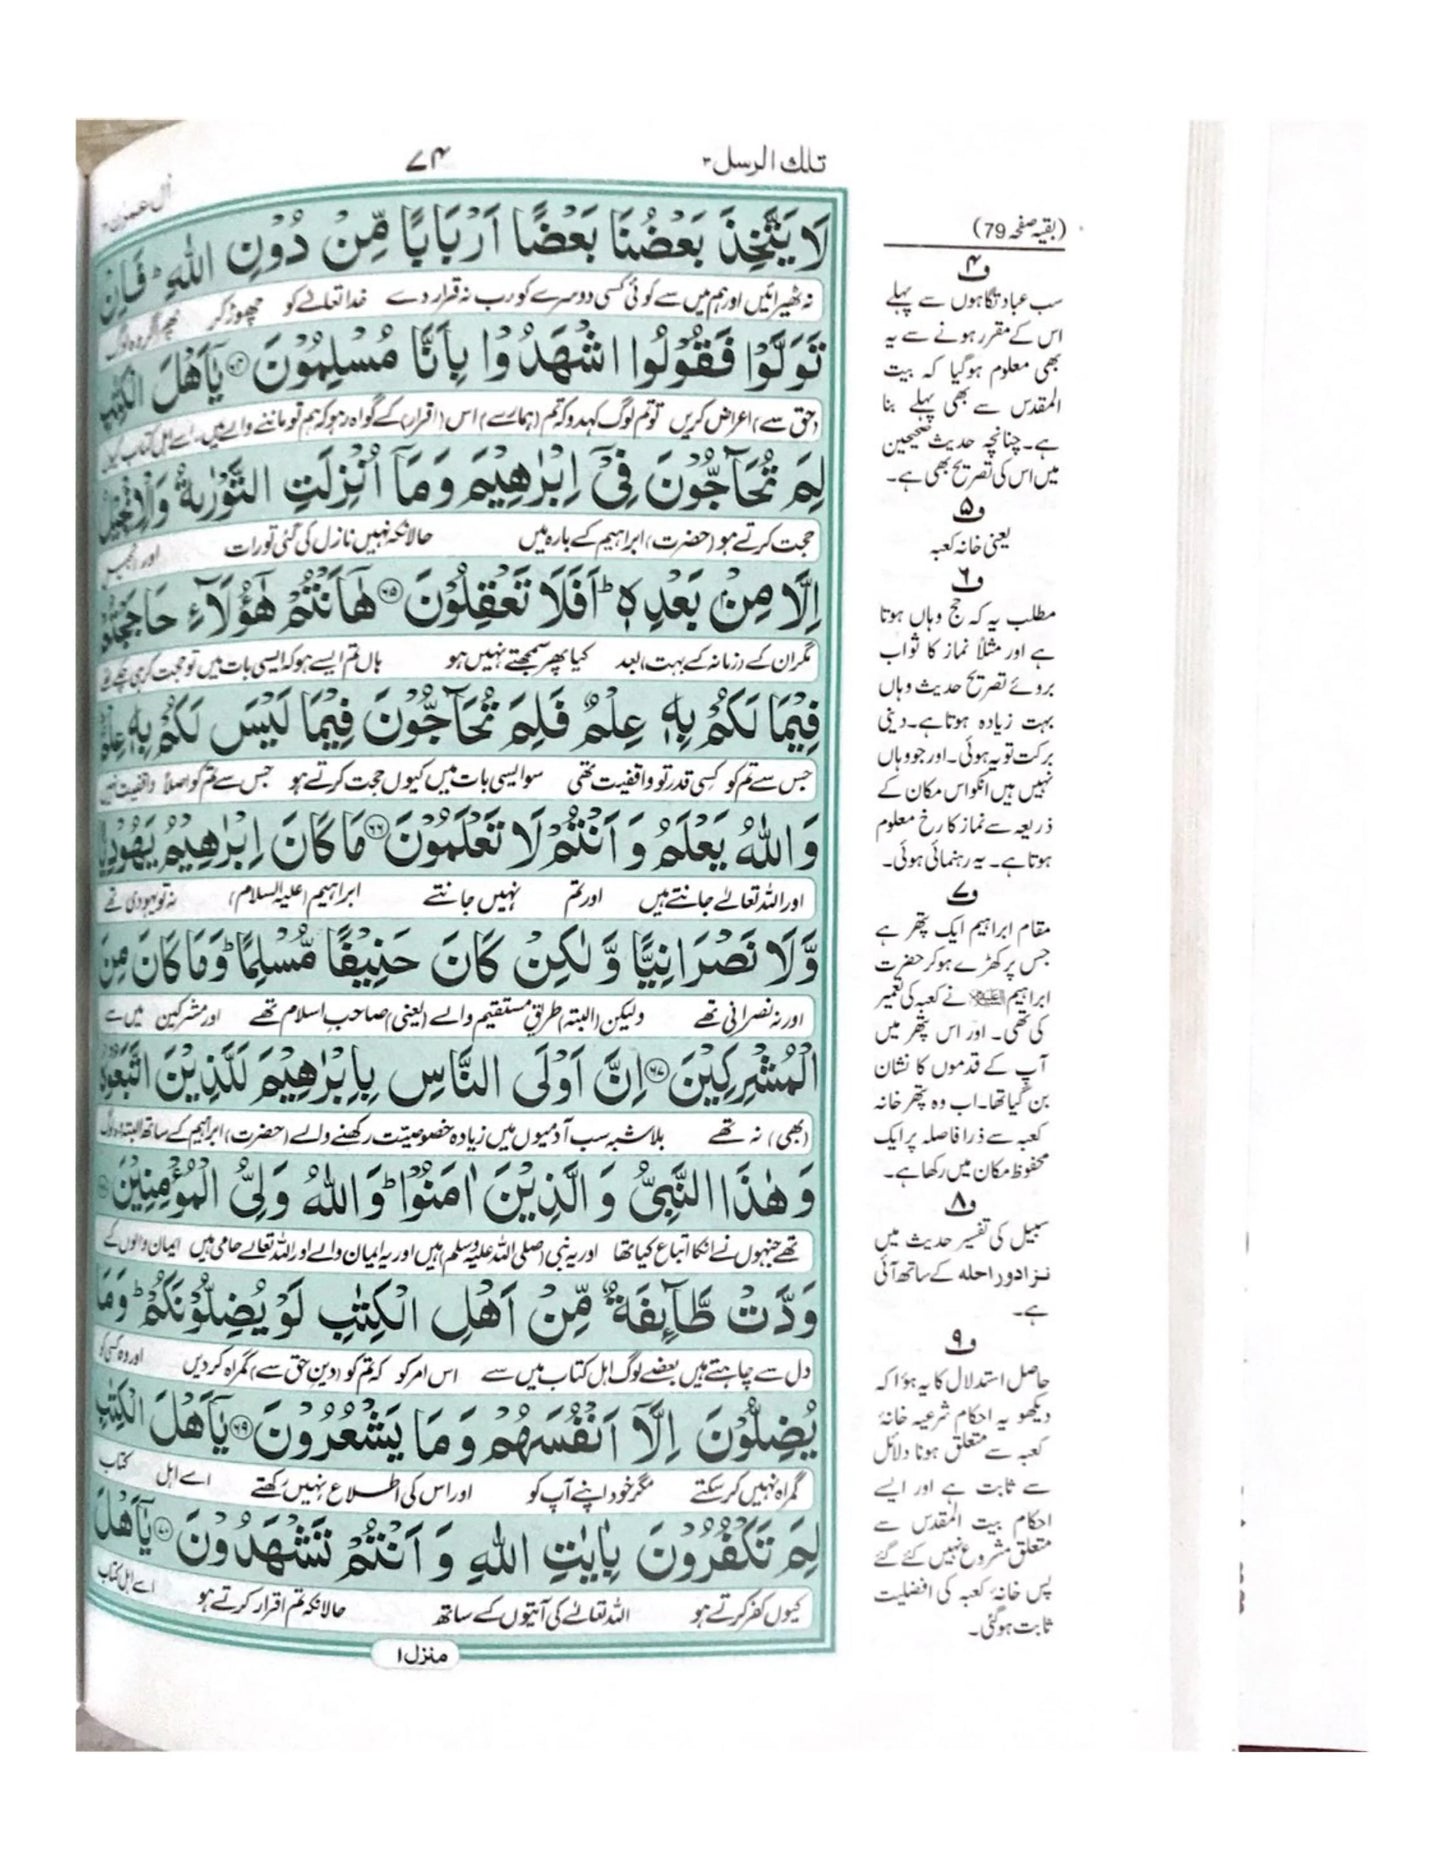 تلك الرسل ۳
۷۴
اٰل عمرٰن ۳
لَا يَتَّخِذَ بَعْضُنَا بَعْضًا اَرْبَابًا مِّنْ دُوْنِ اللّٰهِ ؕ فَاِنْ
نہ ٹھیرائیں اور ہم میں سے کوئی کسی دوسرے کو رب نہ قرار دے خدا تعالےٰ کو چھوڑ کر پھر اگر وہ لوگ
تَوَلَّوْا فَقُوْلُوا اشْهَدُوْا بِاَنَّا مُسْلِمُوْنَ ﴿۶۴﴾ يٰۤاَهْلَ الْكِتٰبِ
(حق سے) اعراض کریں تو تم لوگ کہدو کہ تم (ہمارے) اس (اقرار) کے گواہ رہو کہ ہم تو ماننے والے ہیں۔ اے اہل کتاب کیوں
لِمَ تُحَآجُّوْنَ فِىْۤ اِبْرٰهِيْمَ وَمَاۤ اُنْزِلَتِ التَّوْرٰٮةُ وَالْاِنْجِيْلُ
حجت کرتے ہو (حضرت) ابراہیم کے بارہ میں حالانکہ نہیں نازل کی گئی تورات اور انجیل
اِلَّا مِنْۢ بَعْدِهٖ ؕ اَفَلَا تَعْقِلُوْنَ ﴿۶۵﴾ هٰۤاَنْتُمْ هٰٓؤُلَآءِ حَاجَجْتُمْ
مگر ان کے (زمانہ کے بہت) بعد کیا پھر سمجھتے نہیں ہو ہاں تم ایسے ہو کہ ایسی بات میں تو حجت کر ہی چکے تھے
فِيْمَا لَكُمْ بِهٖ عِلْمٌ فَلِمَ تُحَآجُّوْنَ فِيْمَا لَيْسَ لَكُمْ بِهٖ عِلْمٌ ؕ
جس سے تم کو کسی قدر تو واقفیت تھی سو ایسی بات میں کیوں حجت کرتے ہو جس سے تم کو اصلاً واقفیت نہیں
وَاللّٰهُ يَعْلَمُ وَاَنْتُمْ لَا تَعْلَمُوْنَ ﴿۶۶﴾ مَا كَانَ اِبْرٰهِيْمُ يَهُوْدِيًّا
اور اللہ تعالےٰ جانتے ہیں اور تم نہیں جانتے ابراہیم (علیہ السلام) نہ تو یہودی تھے
وَّلَا نَصْرَانِيًّا وَّلٰكِنْ كَانَ حَنِيْفًا مُّسْلِمًا ؕ وَمَا كَانَ مِنَ
اور نہ نصرانی تھے ولیکن (البتہ) طریق مستقیم والے (یعنی) صاحب اسلام تھے اور مشرکین میں سے
الْمُشْرِكِيْنَ ﴿۶۷﴾ اِنَّ اَوْلَى النَّاسِ بِاِبْرٰهِيْمَ لَلَّذِيْنَ اتَّبَعُوْهُ
(بھی) نہ تھے بلاشبہ سب آدمیوں میں زیادہ خصوصیت رکھنے والے (حضرت) ابراہیم کے ساتھ البتہ وہ لوگ
وَهٰذَا النَّبِىُّ وَالَّذِيْنَ اٰمَنُوْا ؕ وَاللّٰهُ وَلِىُّ الْمُؤْمِنِيْنَ ﴿۶۸﴾
تھے جنہوں نے انکا اتباع کیا تھا اور یہ نبی (صلی اللہ علیہ وسلم) ہیں اور یہ ایمان والے اور اللہ تعالےٰ حامی ہیں ایمان والوں کے
وَدَّتْ طَّآئِفَةٌ مِّنْ اَهْلِ الْكِتٰبِ لَوْ يُضِلُّوْنَكُمْ ؕ وَمَا
دل سے چاہتے ہیں بعضے لوگ اہل کتاب میں سے اس امر کو کہ تم کو (دین حق سے) گمراہ کر دیں اور وہ کسی کو
يُضِلُّوْنَ اِلَّاۤ اَنْفُسَهُمْ وَمَا يَشْعُرُوْنَ ﴿۶۹﴾ يٰۤاَهْلَ الْكِتٰبِ
گمراہ نہیں کر سکتے مگر خود اپنے آپ کو اور اس کی اطلاع نہیں رکھتے اے اہل کتاب
لِمَ تَكْفُرُوْنَ بِاٰيٰتِ اللّٰهِ وَاَنْتُمْ تَشْهَدُوْنَ ﴿۷۰﴾ يٰۤاَهْلَ
کیوں کفر کرتے ہو اللہ تعالےٰ کی آیتوں کے ساتھ حالانکہ تم اقرار کرتے ہو اے اہل کتاب
منزل ۱
(بقیہ صفحہ 79)
ف۴
سب عبادتگاہوں سے پہلے
اس کے مقرر ہونے سے یہ
بھی معلوم ہو گیا کہ بیت
المقدس سے بھی پہلے بنا
ہے۔ چنانچہ حدیث صحیحین
میں اس کی تصریح بھی ہے۔
ف۵
یعنی خانہ کعبہ
ف۶
مطلب یہ کہ حج وہاں ہوتا
ہے اور مثلاً نماز کا ثواب
بروئے تصریح حدیث وہاں
بہت زیادہ ہوتا ہے۔ دینی
برکت تو یہ ہوئی۔ اور جو وہاں
نہیں ہیں انکو اس مکان کے
ذریعہ سے نماز کا رخ معلوم
ہوتا ہے۔ یہ رہنمائی ہوئی۔
ف۷
مقام ابراہیم ایک پتھر ہے
جس پر کھڑے ہو کر حضرت
ابراہیم علیہ السلام نے کعبہ کی تعمیر
کی تھی۔ اور اس پتھر میں
آپ کے قدموں کا نشان
بن گیا تھا۔ اب وہ پتھر خانہ
کعبہ سے ذرا فاصلہ پر ایک
محفوظ مکان میں رکھا ہے۔
ف۸
سبیل کی تفسیر حدیث میں
نزاد و راحلہ کے ساتھ آئی
ہے۔
ف۹
حاصل استدلال کا یہ ہؤا کہ
دیکھو یہ احکام شرعیہ خانۂ
کعبہ سے متعلق ہونا دلائل
سے ثابت ہے اور ایسے
احکام بیت المقدس سے
متعلق مشروع نہیں کئے گئے
پس خانۂ کعبہ کی افضلیت
ثابت ہو گئی۔